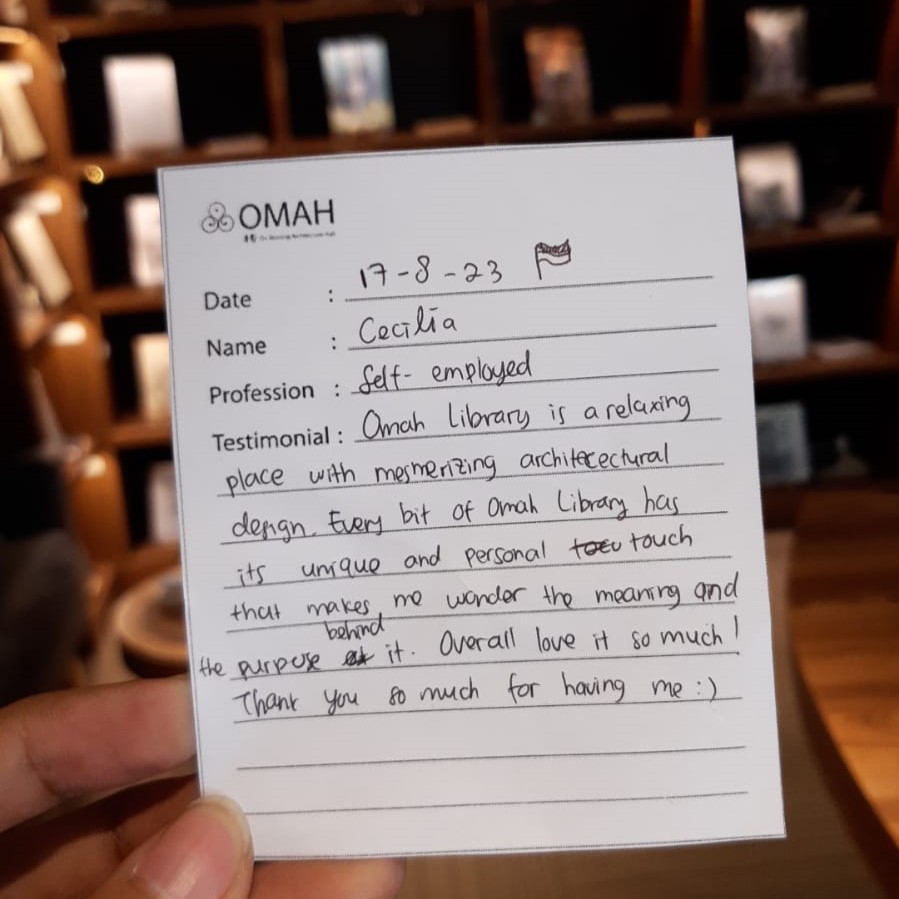 OMAH
Date : 17-8-23
Name : Cecilia
Profession : Self-employed
Testimonial : Omah Library is a relaxing
place with mesmerizing architecectural
design. Every bit of Omah Library has
its unique and personal touch
that makes me wonder the meaning and
the purpose behind it. Overall love it so much!
Thank you so much for having me :)